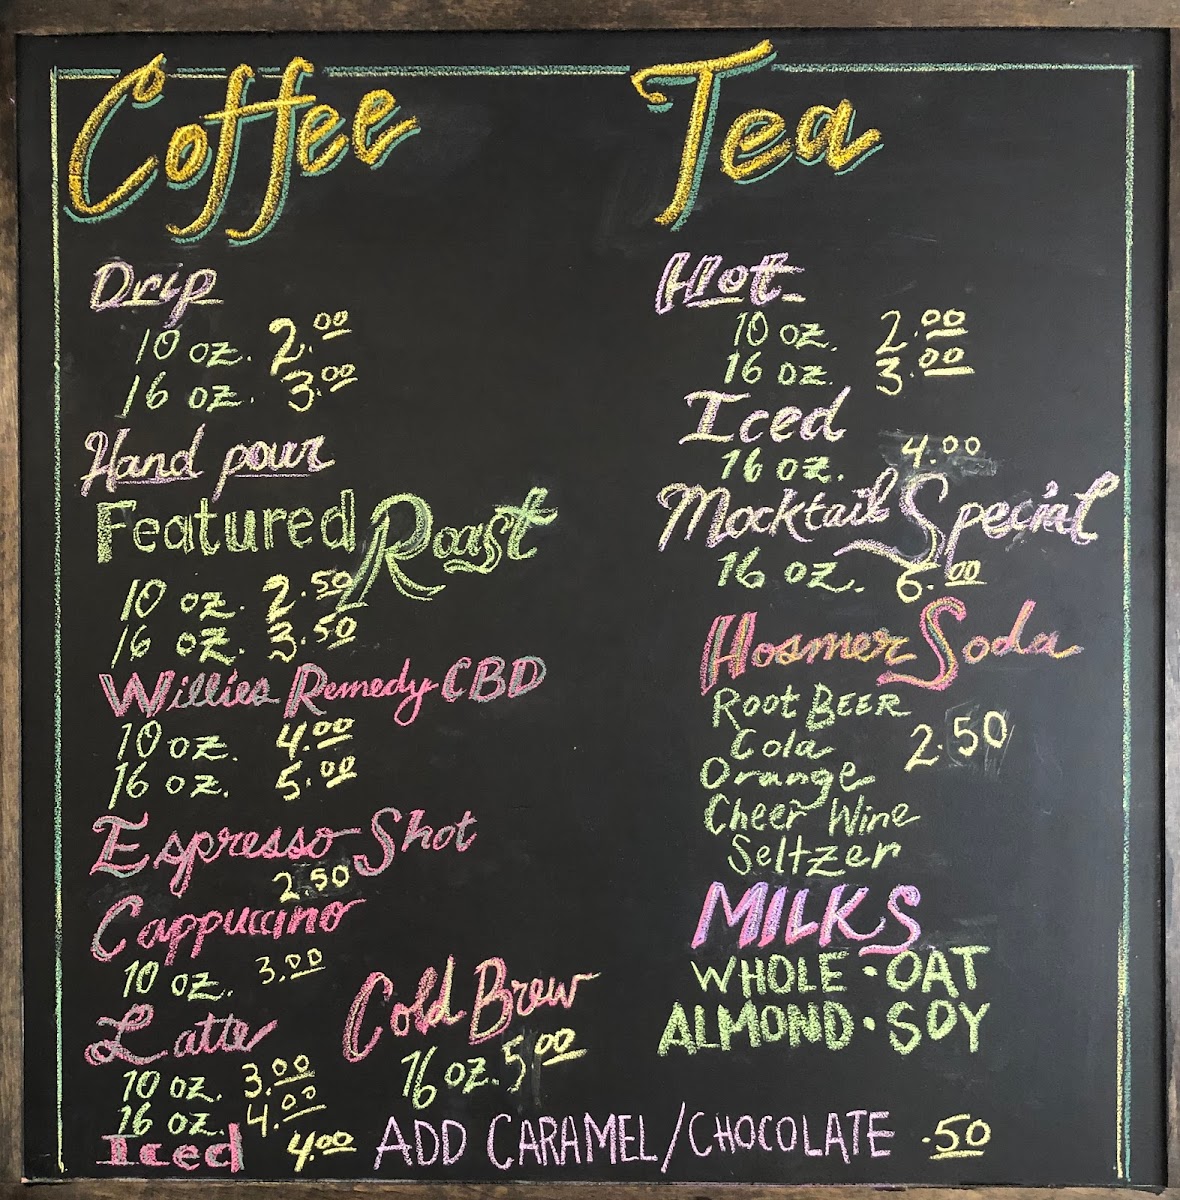 Coffee
Drip
10 oz. 2.00
16 oz. 3.00
Hand pour
Featured Roast
10 oz. 2.50
16 oz. 3.50
Willies Remedy CBD
10 oz. 4.00
16 oz. 5.00
Espresso Shot
2.50
Cappuccino
10 oz. 3.00
Latte
10 oz. 3.00
16 oz. 4.00
Iced 4.00
Cold Brew
16 oz. 5.00
Tea
Hot
10 oz. 2.00
16 oz. 3.00
Iced
16 oz. 4.00
Mocktail Special
16 oz. 6.00
Hosmer Soda
Root BEER
Cola 2.50
Orange
Cheer Wine
Seltzer
MILKS
WHOLE • OAT
ALMOND • SOY
ADD CARAMEL/CHOCOLATE .50